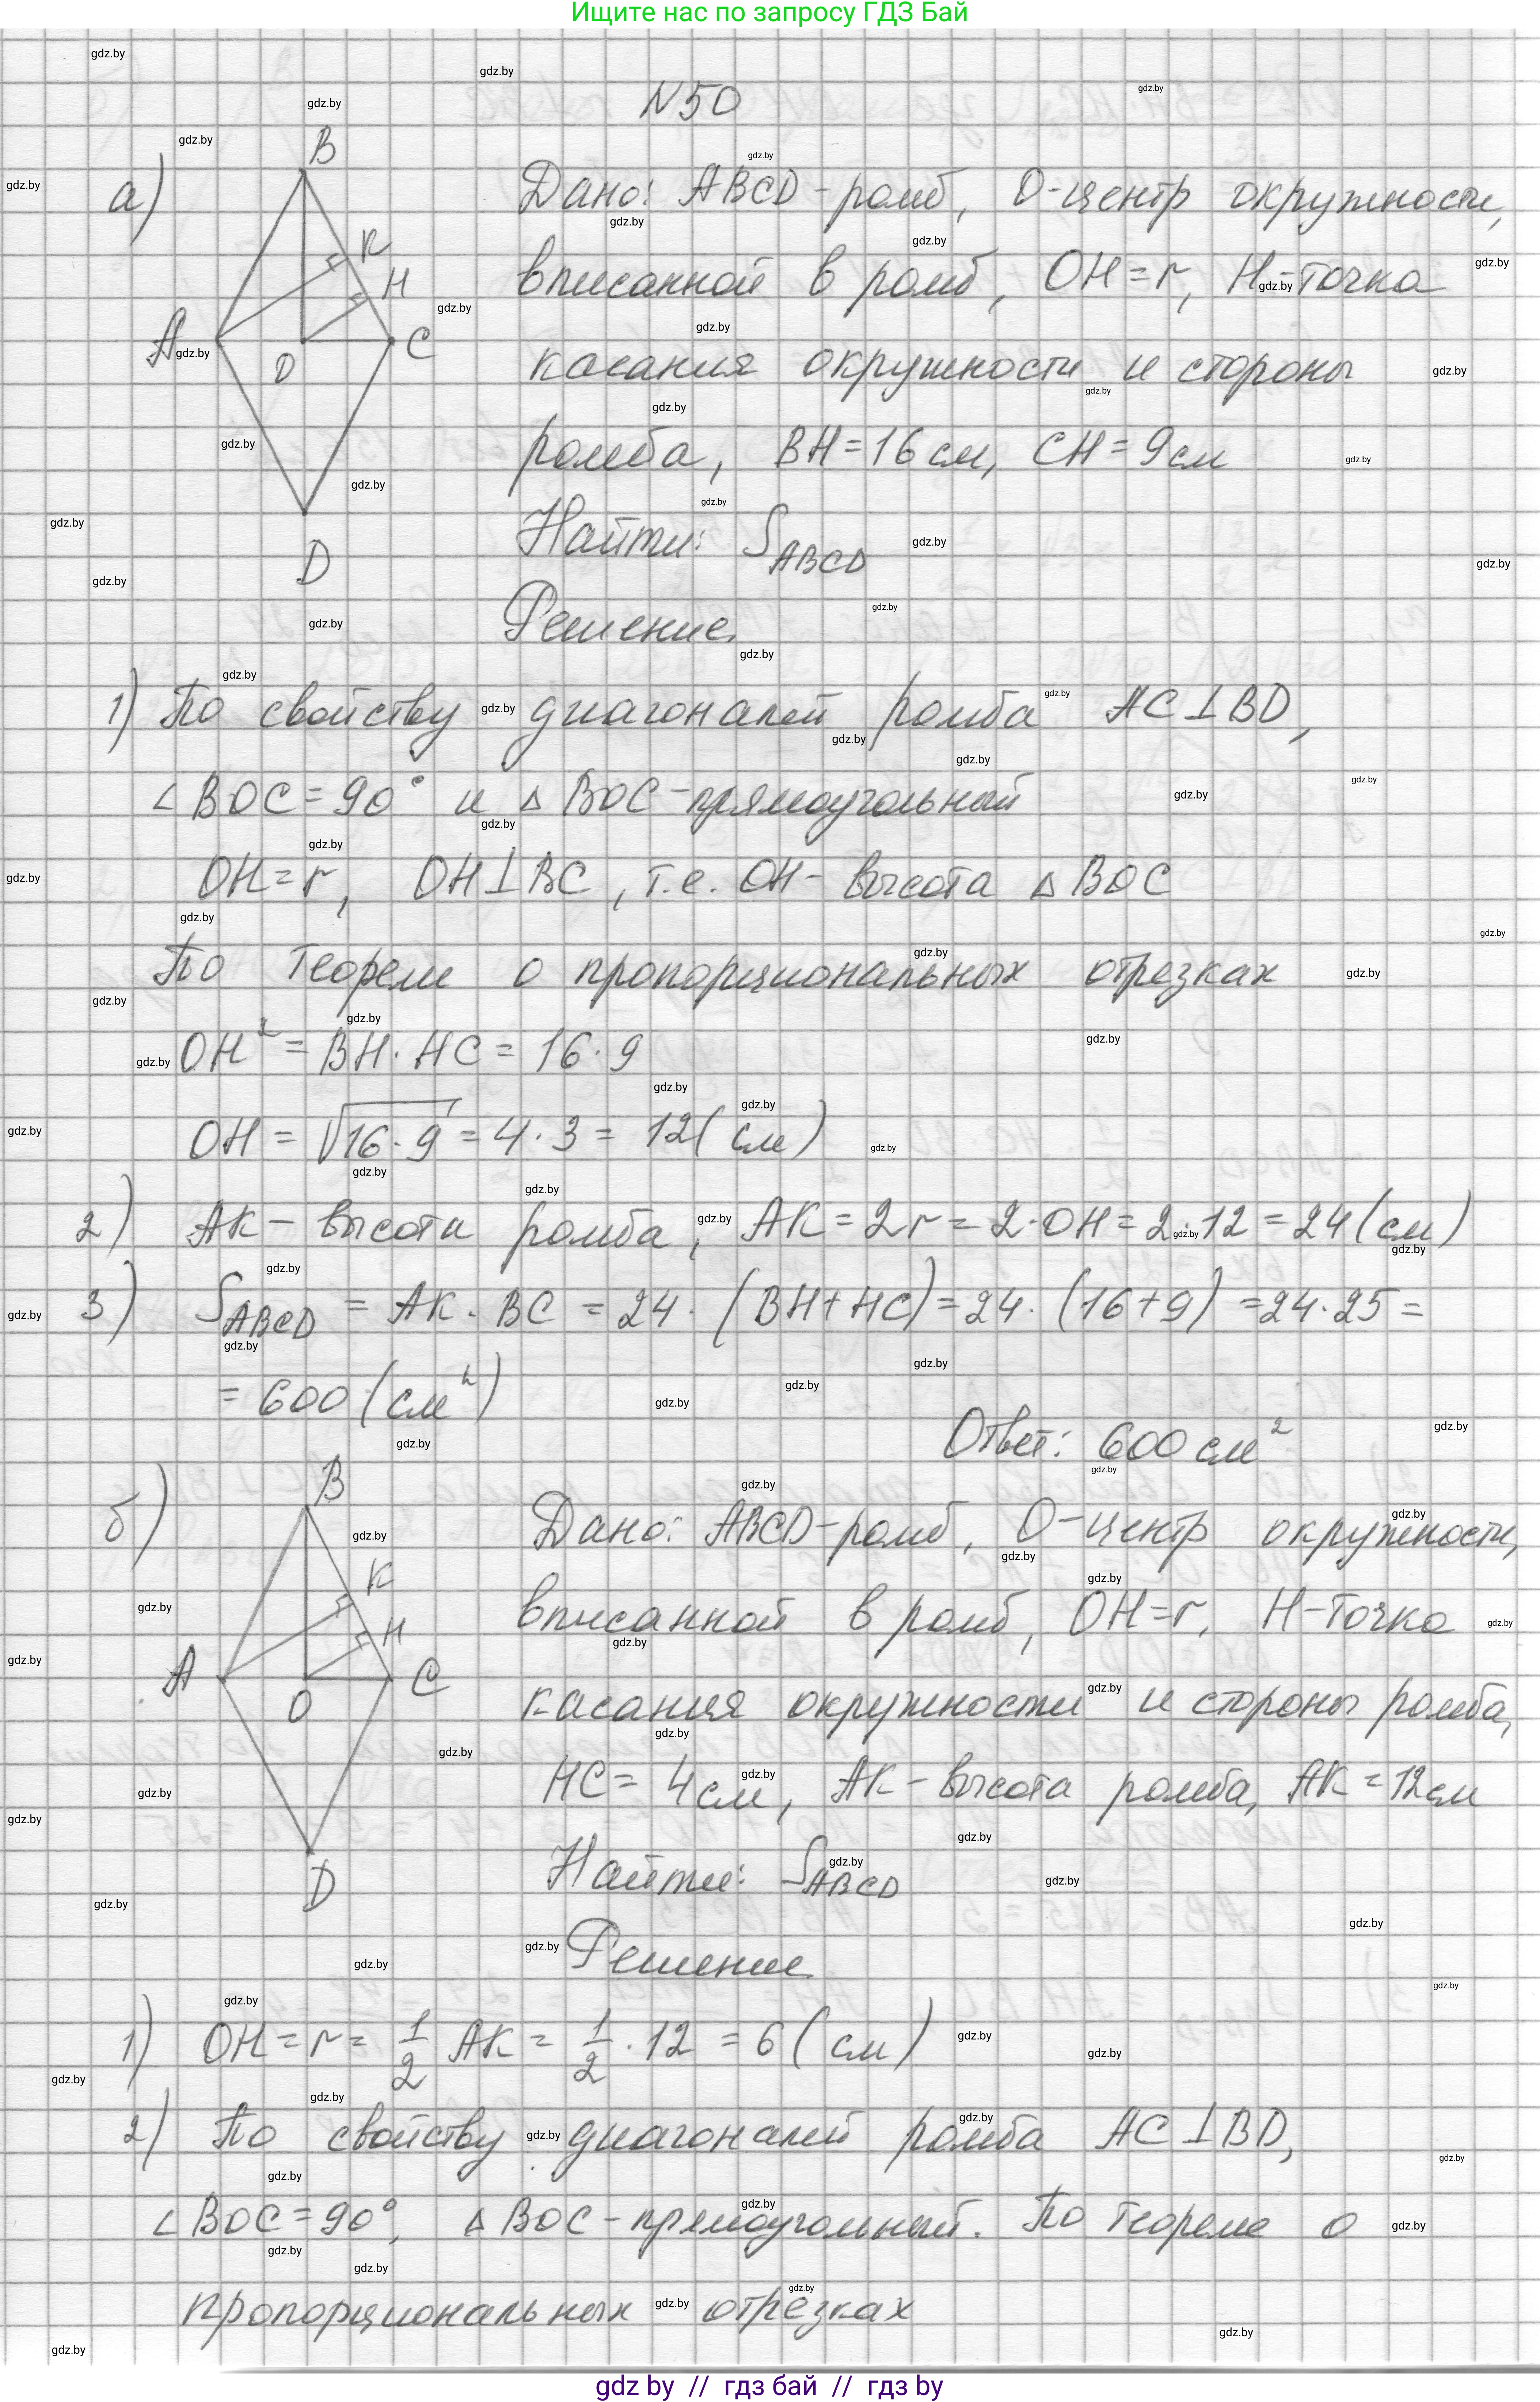 Ищите нас по запросу ГДЗ Бай
N50
а)
B
K
H
A
O
C
D
Дано: ABCD-ромб, O-центр окружности,
вписанной в ромб, OH=r, H-точка
касания окружности и стороны
ромба, BH=16см, CH=9см
Найти: S_ABCD
Решение.
1) По свойству диагоналей ромба AC⊥BD,
∠BOC=90° и △BOC-прямоугольный
OH=r, OH⊥BC, т.е. OH-высота △BOC
По теореме о пропорциональных отрезках
OH²=BH·HC=16·9
OH=√16·9=4·3=12(см)
2) AK-высота ромба, AK=2r=2·OH=2·12=24(см)
3) S_ABCD=AK·BC=24·(BH+HC)=24·(16+9)=24·25=
=600(см²)
Ответ: 600см²
б)
B
K
H
A
O
C
D
Дано: ABCD-ромб, O-центр окружности,
вписанной в ромб, OH=r, H-точка
касания окружности и стороны ромба,
HC=4см, AK-высота ромба, AK=12см
Найти: S_ABCD
Решение
1) OH=r=1/2 AK=1/2·12=6(см)
2) По свойству диагоналей ромба AC⊥BD,
∠BOC=90°, △BOC-прямоугольный. По теореме о
пропорциональных отрезках
gdz by // гдз бай // гдз by